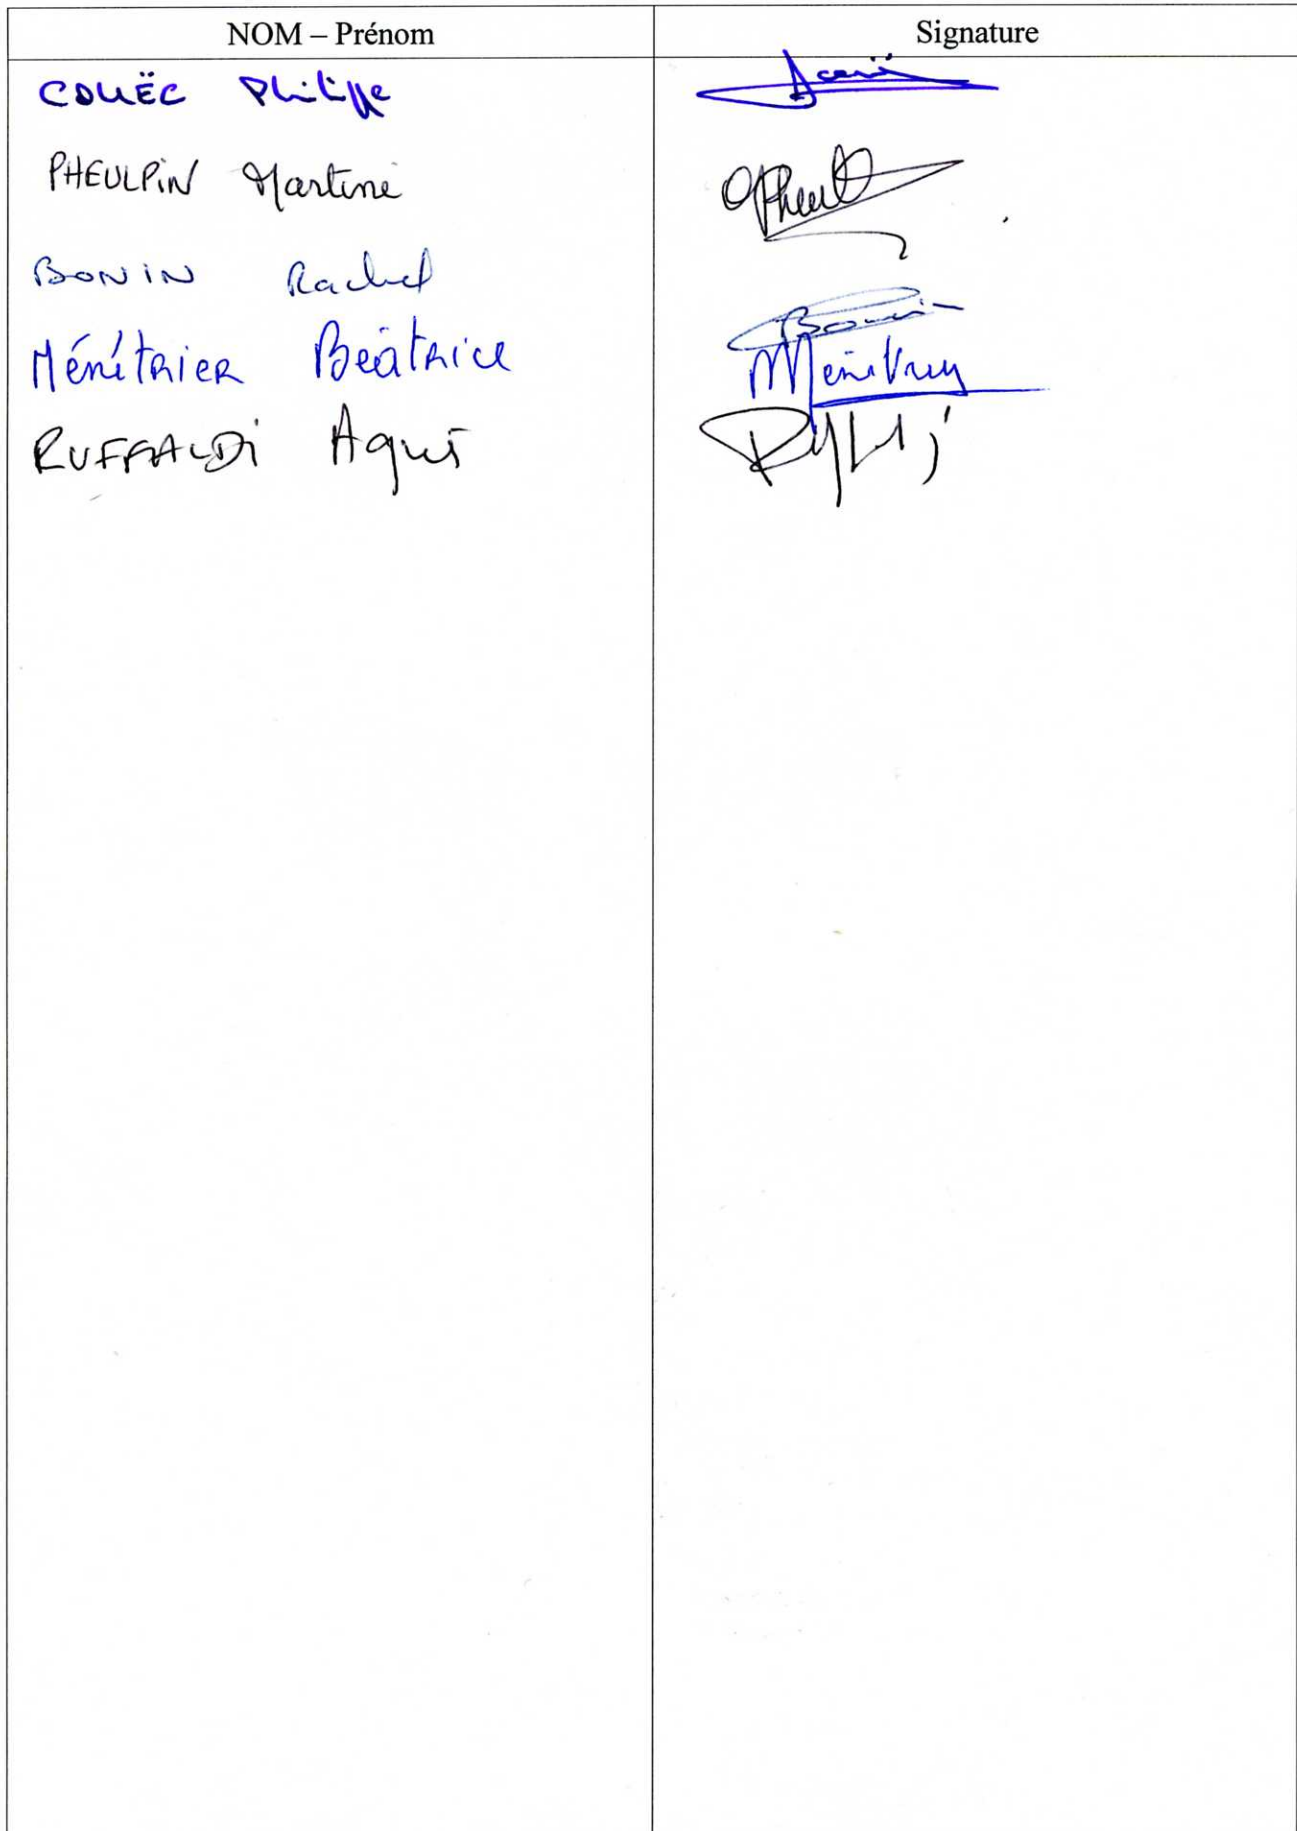 NOM – Prénom Signature
COUËC Philippe
PHEULPIN Martine
BONIN Rachel
Ménétrier Béatrice Menetrier
RUFFALDI